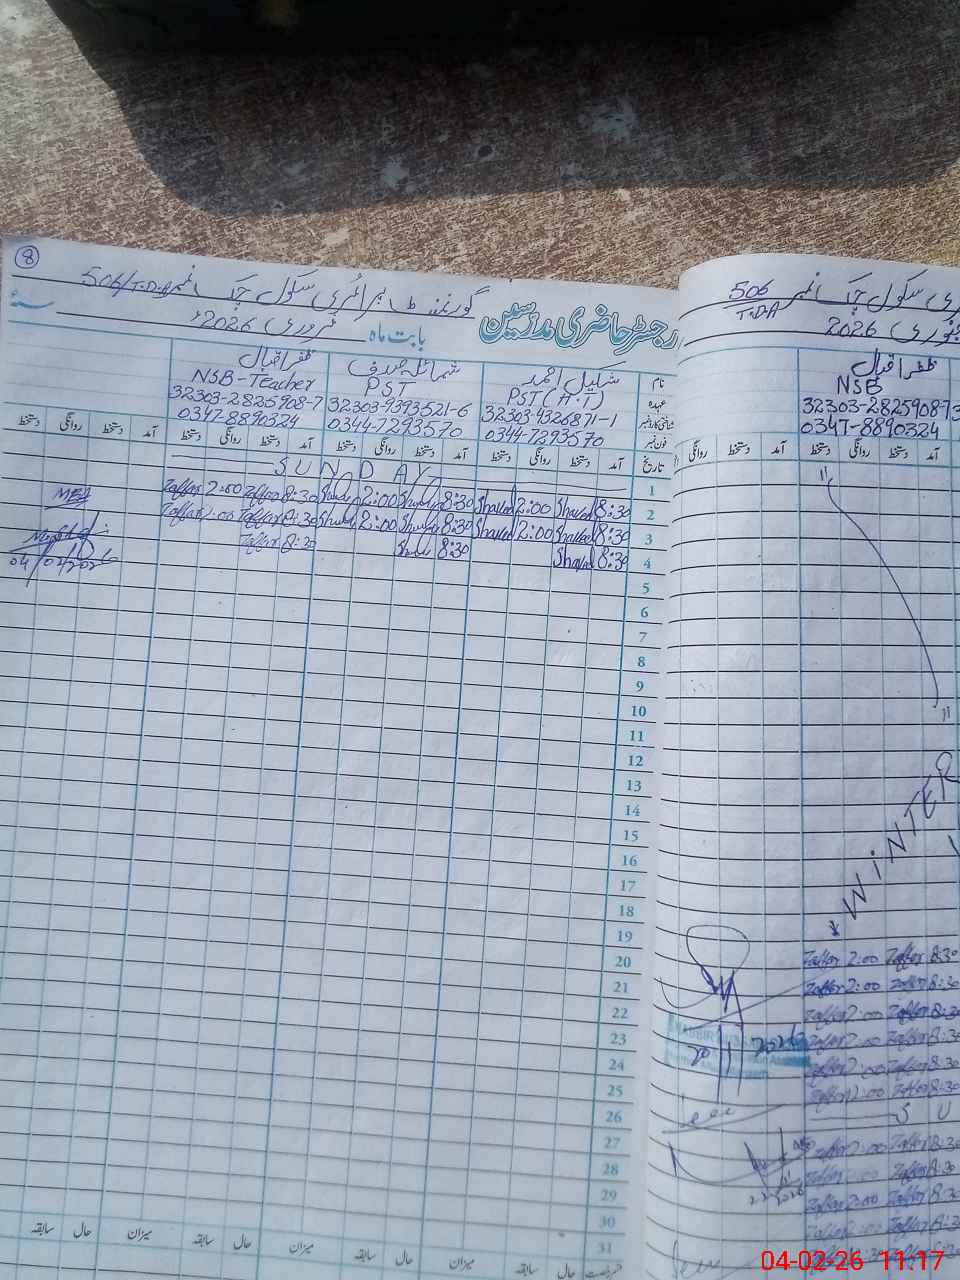 8
گورنمنٹ پرائمری سکول چک نمبر 506/T.D.A
رجسٹر حاضری مدرسین بابت ماہ فروری 2026ء سنہ
نام شکیل احمد شمائلہ صدف ظفر اقبال
عہدہ PST (H.T) PST NSB-Teacher
شناختی کارڈ نمبر 32303-4326871-1 32303-9393521-6 32303-2825908-7
فون نمبر 0344-7293570 0344-7293570 0347-8890324
تاریخ آمد دستخط روانگی دستخط آمد دستخط روانگی دستخط آمد دستخط روانگی دستخط آمد دستخط روانگی دستخط
1 SUNDAY
2 8:30 Shakeel 2:00 Shakeel 8:30 2:00 8:30 Zaffar 2:00 Zaffar
3 8:30 Shakeel 2:00 Shakeel 8:30 2:00 8:30 Zaffar 2:00 Zaffar
4 8:30 Shakeel 8:30 8:30 Zaffar
MEA
04/02/2026
5
6
7
8
9
10
11
12
13
14
15
16
17
18
19
20
21
22
23
24
25
26
27
28
29
30
31
میزان حال سابقہ میزان حال سابقہ میزان حال سابقہ
حال سابقہ
ری سکول چک نمبر 506
T.D.A
جنوری 2026
ظفر اقبال
NSB
32303-2825908-7
0347-8890324
آمد دستخط روانگی دستخط آمد دستخط روانگی
WINTER
8:30 Zaffar 2:00 Zaffar
8:30 Zaffar 2:00 Zaffar
8:30 Zaffar 2:00 Zaffar
8:30 Zaffar 2:00 Zaffar
8:30 Zaffar 2:00 Zaffar
8:30 Zaffar 2:00 Zaffar
S U
8:30 Zaffar 2:00 Zaffar
8:30 Zaffar 2:00 Zaffar
04-02-26 11:17